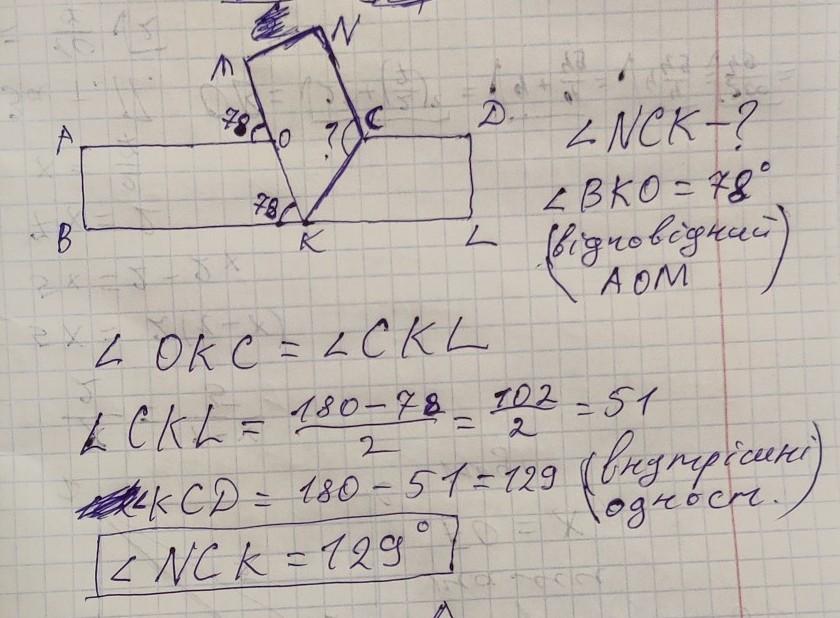 M N
78
A O ? C D
78
B K L
∠NCK - ?
∠BKO = 78°
(відповідний
AOM)
∠OKC = ∠CKL
∠CKL = (180-78)/2 = 102/2 = 51
∠KCD = 180 - 51 = 129 (внутрішні
одност.)
∠NCK = 129°